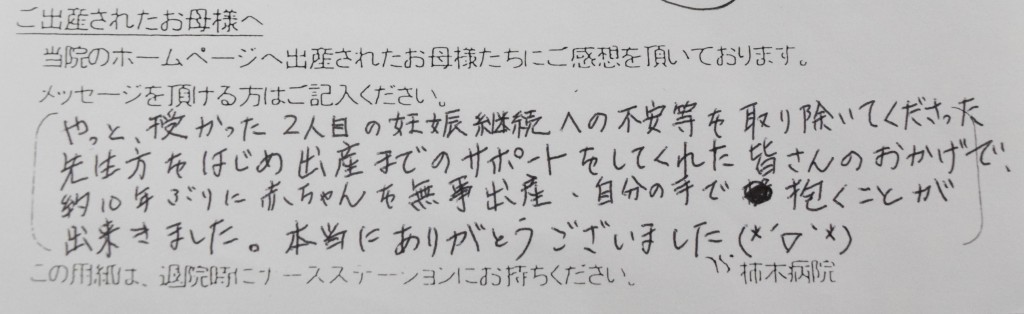 ご出産されたお母様へ
当院のホームページへ出産されたお母様たちにご感想を頂いております。
メッセージを頂ける方はご記入ください。
やっと、授かった2人目の妊娠継続への不安等を取り除いてくださった
先生方をはじめ出産までのサポートをしてくれた皆さんのおかげで、
約10年ぶりに赤ちゃんを無事出産、自分の手で抱くことが
出来きました。本当にありがとうございました(*´▽`*)
この用紙は、退院時にナースステーションにお持ちください。 柿木病院